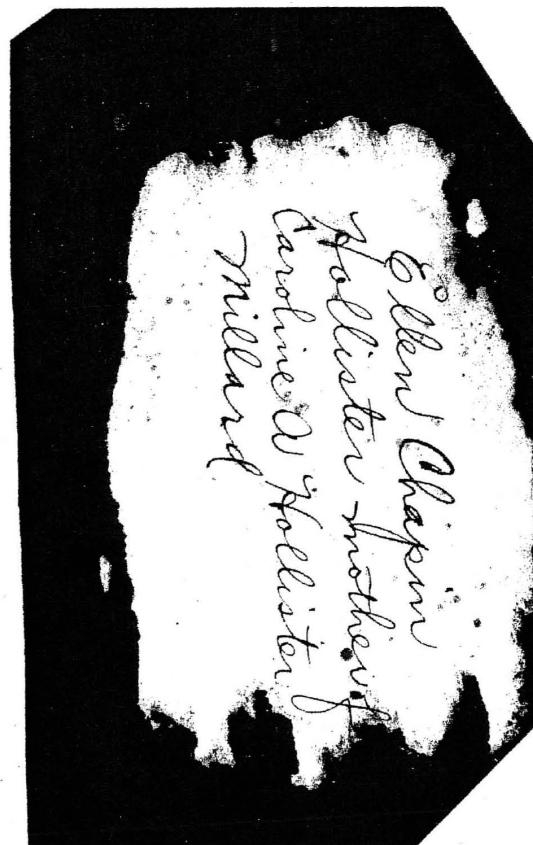 Ellen Chapin
Hollister mother of
Caroline A Hollister
Millard